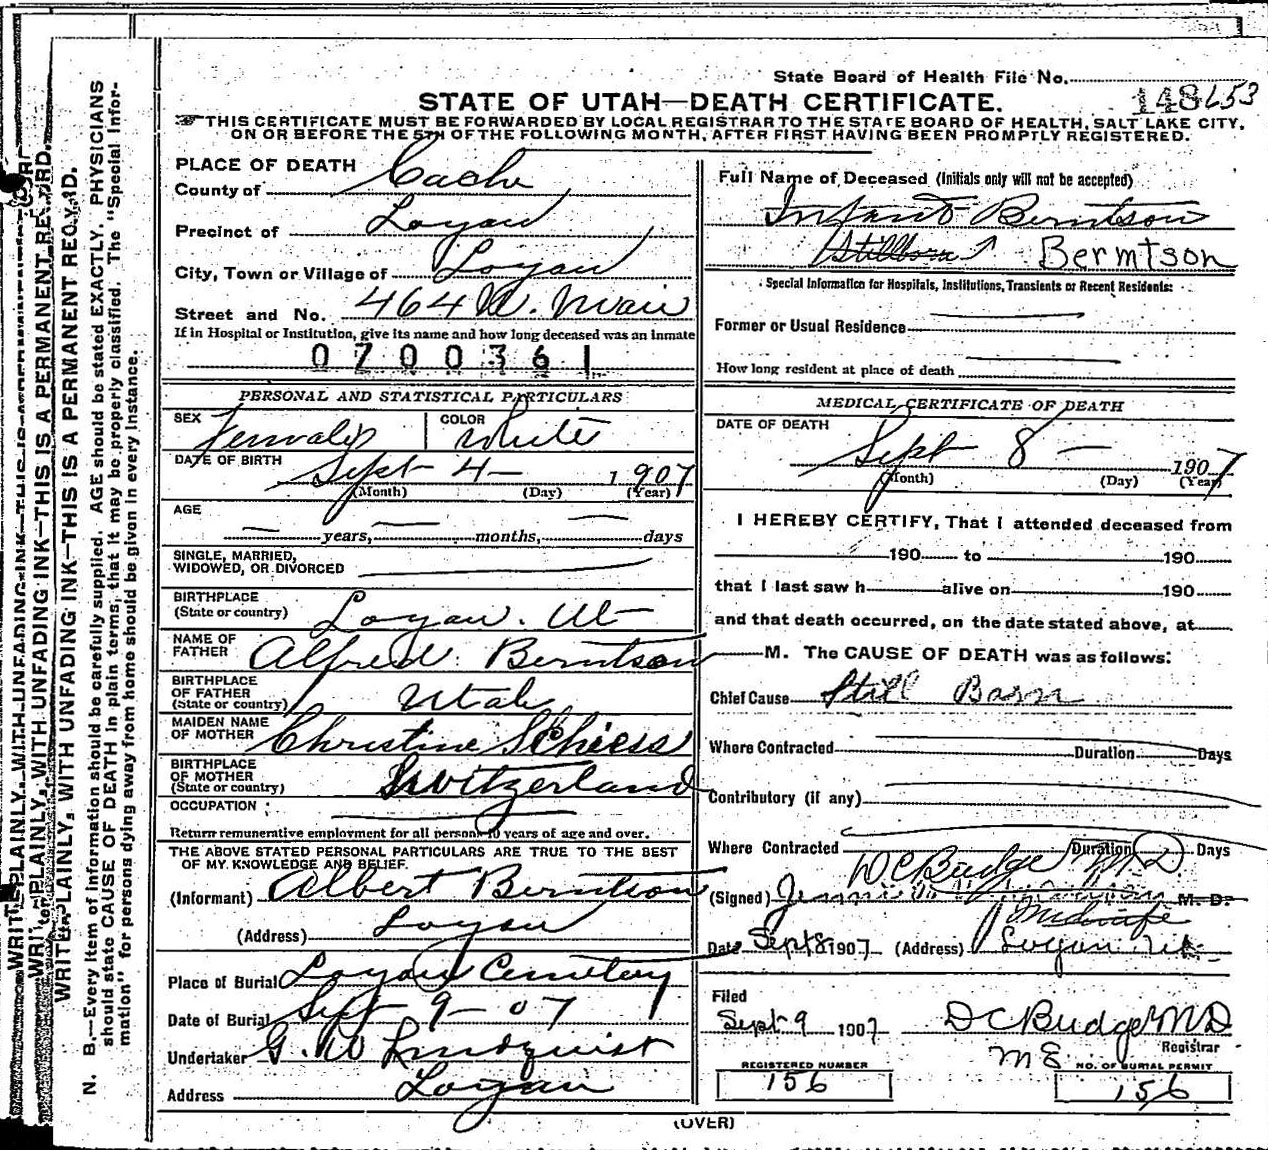 State Board of Health File No.
148 153
STATE OF UTAH—DEATH CERTIFICATE.
THIS CERTIFICATE MUST BE FORWARDED BY LOCAL REGISTRAR TO THE STATE BOARD OF HEALTH, SALT LAKE CITY,
ON OR BEFORE THE 5TH OF THE FOLLOWING MONTH, AFTER FIRST HAVING BEEN PROMPTLY REGISTERED.
PLACE OF DEATH
County of Cache
Precinct of Logan
City, Town or Village of Logan
Street and No. 464 W. Main
If in Hospital or Institution, give its name and how long deceased was an inmate
0700361
PERSONAL AND STATISTICAL PARTICULARS
SEX Female COLOR White
DATE OF BIRTH Sept 4 — 1907
(Month) (Day) (Year)
AGE
— years, — months, — days
SINGLE, MARRIED,
WIDOWED, OR DIVORCED
BIRTHPLACE
(State or country) Logan. Ut
NAME OF
FATHER Alfred Berntson
BIRTHPLACE
OF FATHER
(State or country) Utah
MAIDEN NAME
OF MOTHER Christine Schiess
BIRTHPLACE
OF MOTHER
(State or country) Switzerland
OCCUPATION :
Return remunerative employment for all persons 10 years of age and over.
THE ABOVE STATED PERSONAL PARTICULARS ARE TRUE TO THE BEST
OF MY KNOWLEDGE AND BELIEF.
(Informant) Albert Berntson
(Address) Logan
Place of Burial Logan Cemetery
Date of Burial Sept 9 - 07
Undertaker G. W Lindquist
Address Logan
Full Name of Deceased (Initials only will not be accepted)
Infant Berntson
Stillborn Bermtson
Special Information for Hospitals, Institutions, Transients or Recent Residents:
Former or Usual Residence
How long resident at place of death
MEDICAL CERTIFICATE OF DEATH
DATE OF DEATH
Sept 8 — 1907
(Month) (Day) (Year)
I HEREBY CERTIFY, That I attended deceased from
190 to 190
that I last saw h alive on 190
and that death occurred, on the date stated above, at
M. The CAUSE OF DEATH was as follows:
Chief Cause Still Born
Where Contracted Duration Days
Contributory (if any)
Where Contracted Duration Days
DC Budge M D
(Signed) Jennie M. D.
Midwife
Date Sept 8 1907 (Address) Logan Ut.
Filed
Sept 9 1907 DC Budge MD
Registrar
M E
REGISTERED NUMBER
156
NO. OF BURIAL PERMIT
156
(OVER)
WRITE PLAINLY, WITH UNFADING INK—THIS IS A PERMANENT RECORD.
N. B.—Every item of information should be carefully supplied. AGE should be stated EXACTLY. PHYSICIANS
should state CAUSE OF DEATH in plain terms, that it may be properly classified. The "Special Infor-
mation" for persons dying away from home should be given in every instance.